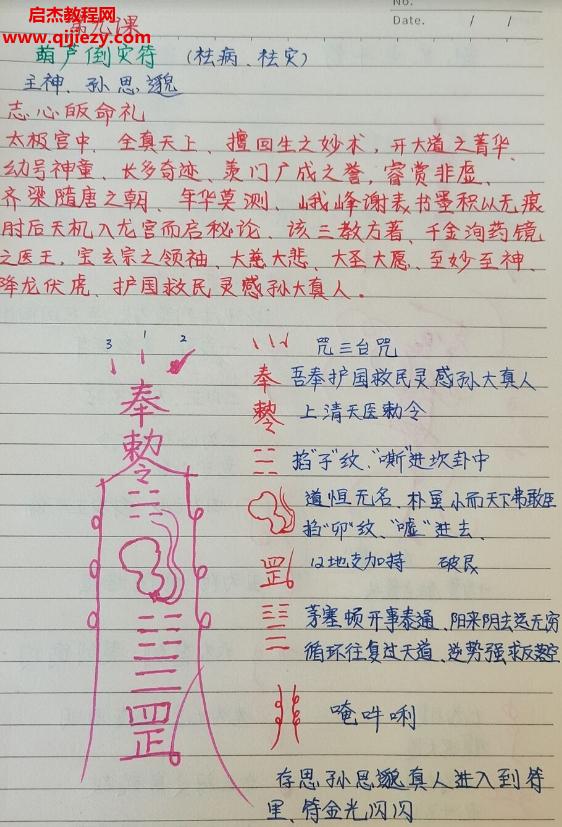 No.
Date. / /
启杰教程网
www.qijiezy.com
第九课
葫芦倒灾符 (祛病、祛灾)
主神、孙思邈
志心皈命礼
太极宫中、全真天上、擅回生之妙术，开大道之菁华、
幼号神童、长多奇迹、羡门广成之誉，睿赏非虚、
齐梁隋唐之朝、年华莫测、峨峰谢表书墨积以无痕
肘后天机入龙宫而启秘论、该三教方著、千金洵药镜
之医王，宝玄宗之领袖、大慈大悲、大圣大愿、至妙至神、
降龙伏虎、护国救民灵感孙大真人.
3 1 2
奉
敕令
罡
咒三台咒
奉 吾奉护国救民灵感孙大真人
敕令 上清天医敕令
掐“子”纹、“嘶”进坎卦中
道恒无名、朴虽小而天下弗敢臣
掐“卯”纹、“嘘”进去、
罡 12地支加持 破艮
茅塞顿开事泰通、阳来阴去运无穷
循环往复过天道、逆势强求反落空
唵吽唎
存思孙思邈真人进入到符
里、符金光闪闪